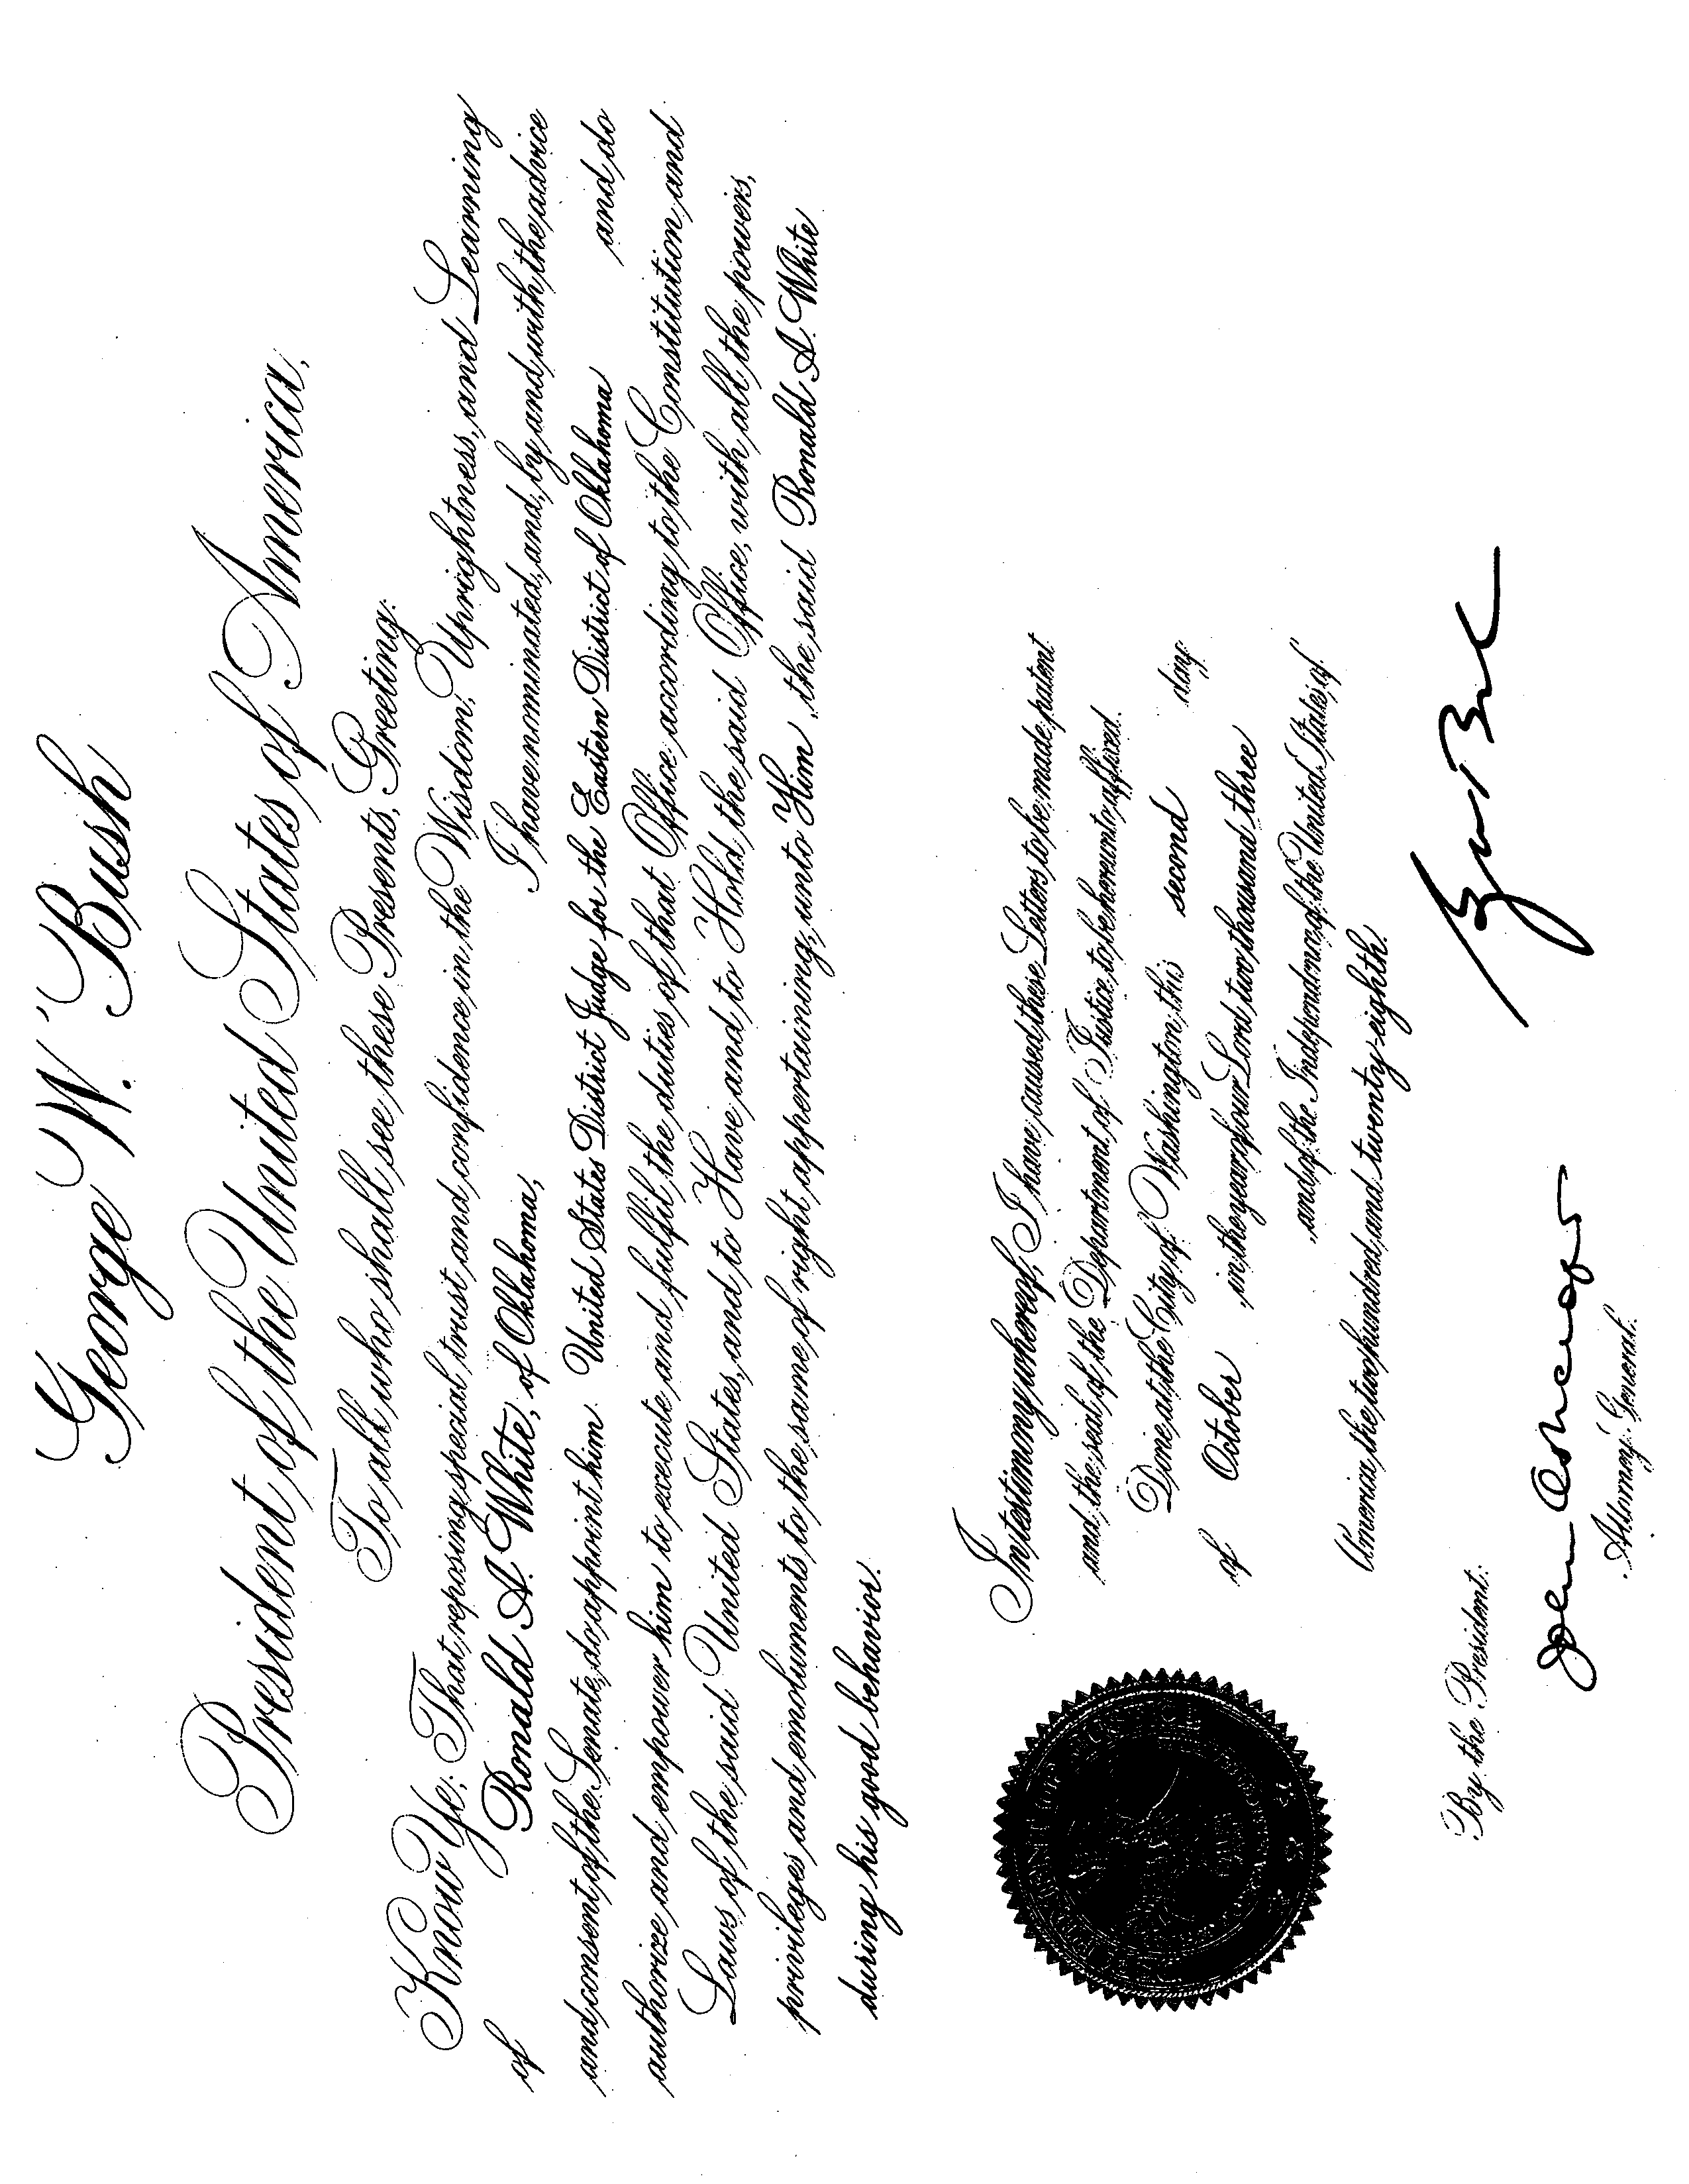 George W. Bush
President of the United States of America,
To all who shall see these Presents, Greeting:
Know Ye; That reposing special trust and confidence in the Wisdom, Uprightness, and Learning
of Ronald A. White, of Oklahoma, I have nominated, and, by and with the advice
and consent of the Senate, do appoint him United States District Judge for the Eastern District of Oklahoma and do
authorize and empower him to execute and fulfil the duties of that Office according to the Constitution and
Laws of the said United States, and to Have and to Hold the said Office, with all the powers,
privileges and emoluments to the same of right appertaining, unto Him, the said Ronald A. White
during his good behavior.
In testimony whereof, I have caused these Letters to be made patent
and the seal of the Department of Justice to be hereunto affixed.
Done at the City of Washington this second day
of October, in the year of our Lord two thousand three
and of the Independence of the United States of
America the two hundred and twenty-eighth.
JUSTICE
By the President:
John Ashcroft
Attorney General.